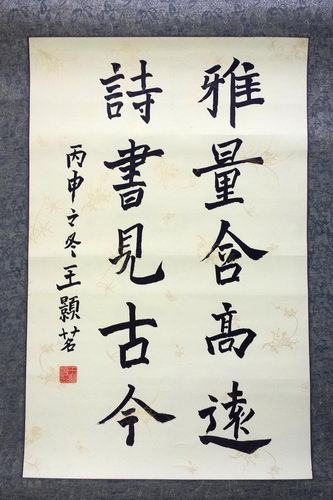 雅量含高遠
詩書見古今
丙申之冬王顥茗